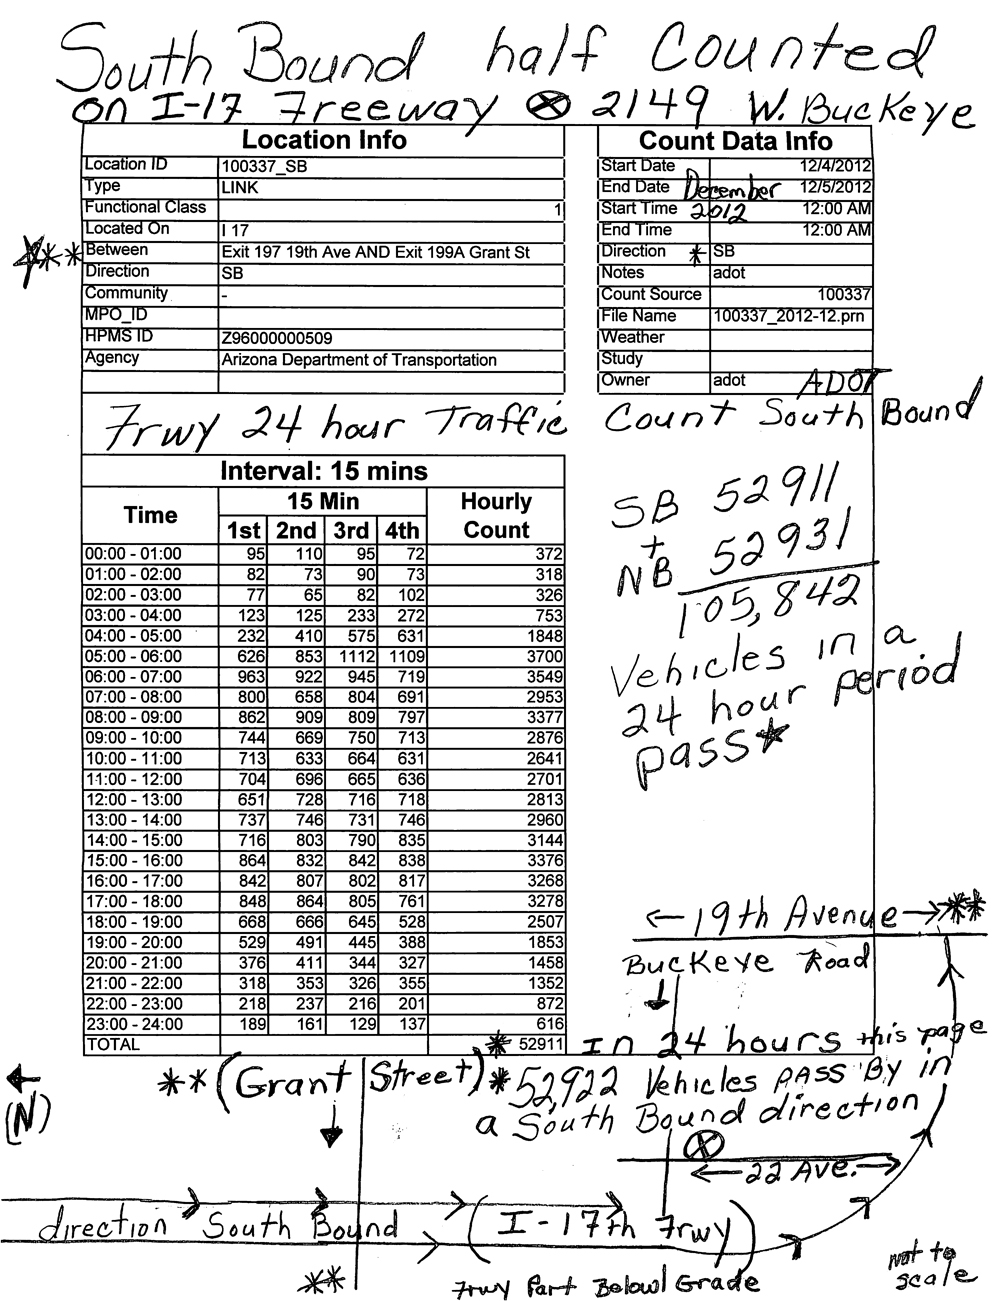 South Bound half Counted
on I-17 Freeway ⊗ 2149 W. Buckeye
Location Info
Location ID 100337_SB
Type LINK
Functional Class 1
Located On I 17
*** Between Exit 197 19th Ave AND Exit 199A Grant St
Direction SB
Community -
MPO_ID
HPMS ID Z96000000509
Agency Arizona Department of Transportation
Count Data Info
Start Date 12/4/2012
End Date December 12/5/2012
Start Time 2012 12:00 AM
End Time 12:00 AM
Direction * SB
Notes adot
Count Source 100337
File Name 100337_2012-12.prn
Weather
Study
Owner adot ADOT
Frwy 24 hour Traffic Count South Bound
Interval: 15 mins
Time 15 Min Hourly Count
1st 2nd 3rd 4th
00:00 - 01:00 95 110 95 72 372
01:00 - 02:00 82 73 90 73 318
02:00 - 03:00 77 65 82 102 326
03:00 - 04:00 123 125 233 272 753
04:00 - 05:00 232 410 575 631 1848
05:00 - 06:00 626 853 1112 1109 3700
06:00 - 07:00 963 922 945 719 3549
07:00 - 08:00 800 658 804 691 2953
08:00 - 09:00 862 909 809 797 3377
09:00 - 10:00 744 669 750 713 2876
10:00 - 11:00 713 633 664 631 2641
11:00 - 12:00 704 696 665 636 2701
12:00 - 13:00 651 728 716 718 2813
13:00 - 14:00 737 746 731 746 2960
14:00 - 15:00 716 803 790 835 3144
15:00 - 16:00 864 832 842 838 3376
16:00 - 17:00 842 807 802 817 3268
17:00 - 18:00 848 864 805 761 3278
18:00 - 19:00 668 666 645 528 2507
19:00 - 20:00 529 491 445 388 1853
20:00 - 21:00 376 411 344 327 1458
21:00 - 22:00 318 353 326 355 1352
22:00 - 23:00 218 237 216 201 872
23:00 - 24:00 189 161 129 137 616
TOTAL * 52911
SB 52911
+
NB 52931
105,842
Vehicles in a
24 hour period
pass*
← 19th Avenue → **
Buckeye Road
In 24 hours this page
*52,922 Vehicles pass By in
a South Bound direction
** (Grant Street)
(N)
⊗
← 22 Ave. →
direction South Bound (I-17th Frwy)
**
Frwy Part Below Grade
not to
scale